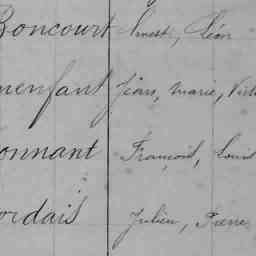 Boncourt Ernest, Léon
enfant Jean, Marie, Vict
onnant François, Louis
ordais Julien, Pierre